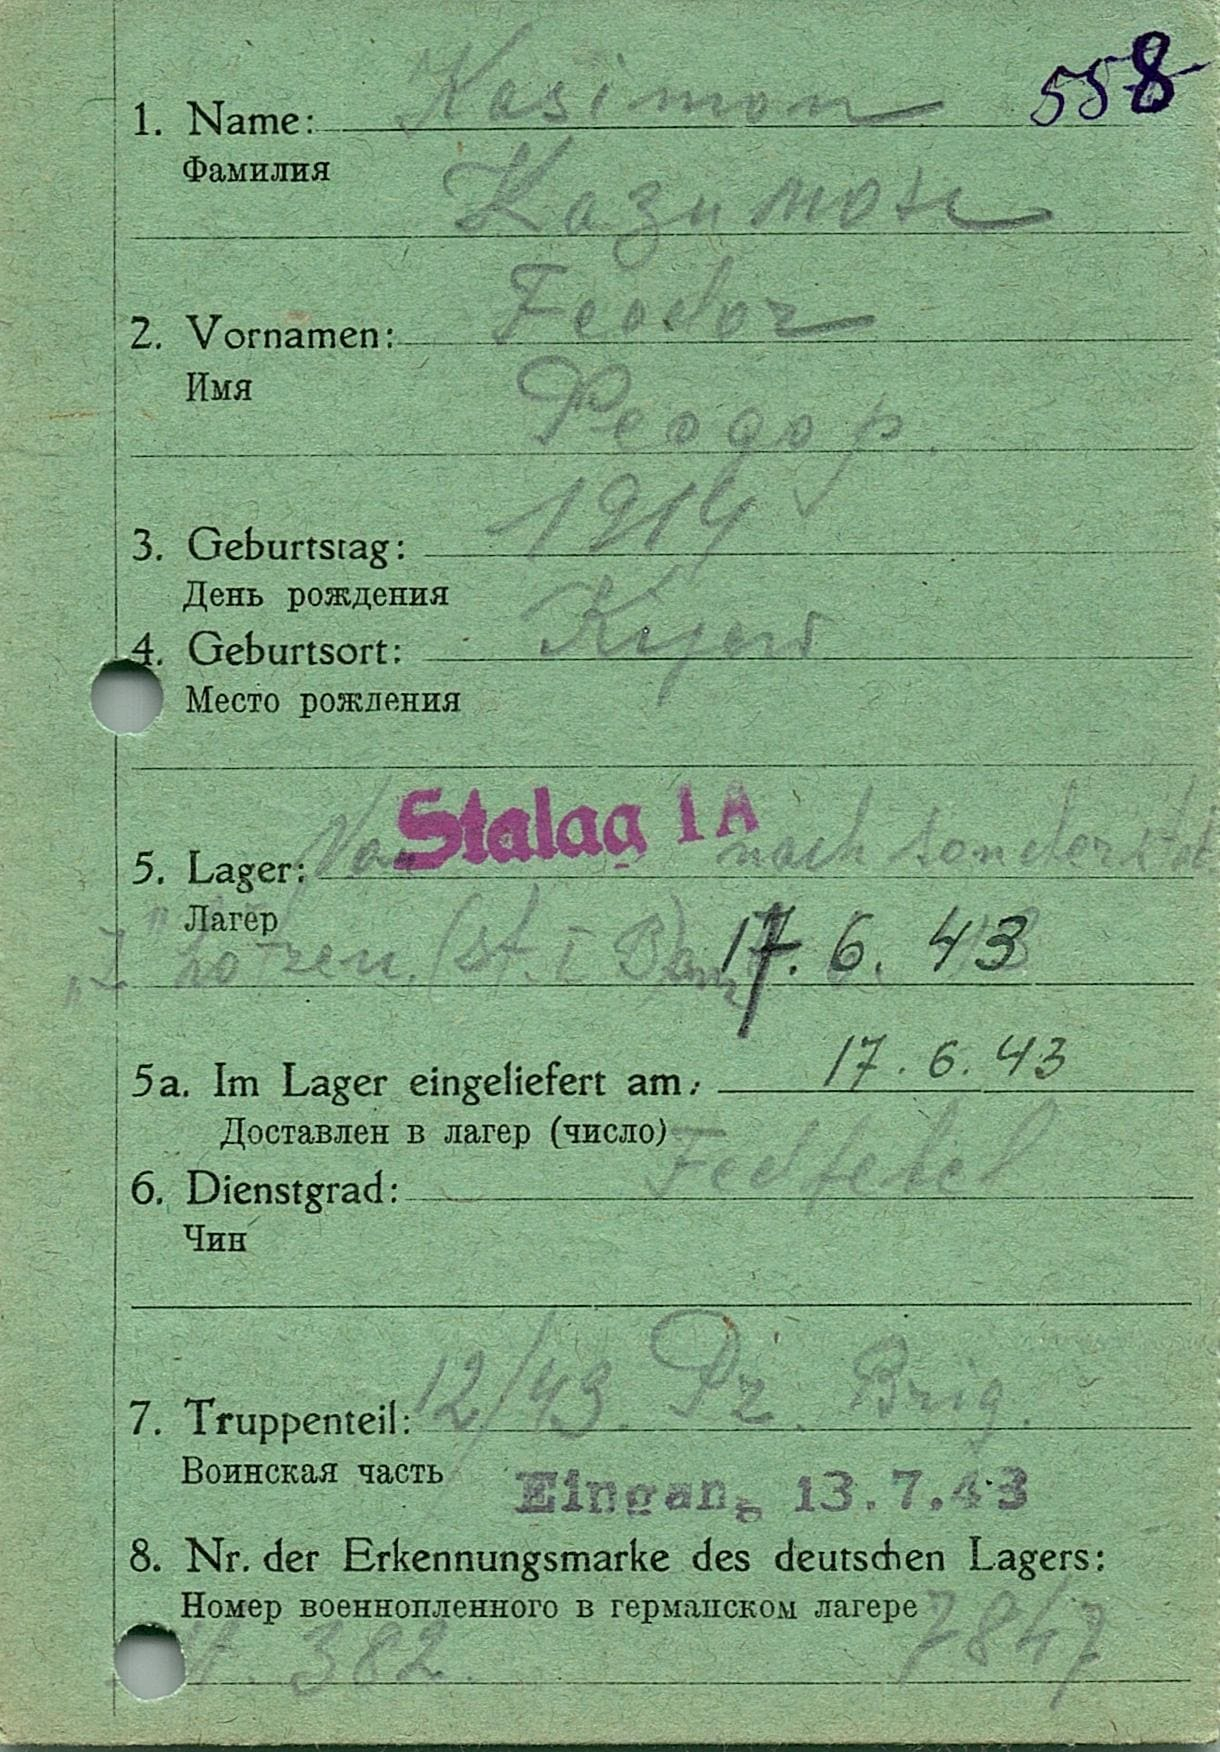 558
1. Name: Kasimon
Фамилия
Казимон
2. Vornamen: Feodor
Имя
Феодор.
3. Geburtstag: 1914
День рождения
4. Geburtsort: Kijew
Место рождения
5. Lager: Von Stalag IA nach Sonder
Лагер
Lötzen (St. I B) am 17. 6. 43
5a. Im Lager eingeliefert am: 17. 6. 43
Доставлен в лагер (число)
6. Dienstgrad:
Чин
7. Truppenteil: 12/43. Pz. Brig.
Воинская часть
Eingang 13.7.43
8. Nr. der Erkennungsmarke des deutschen Lagers:
Номер военнопленного в германском лагере 7847
382.